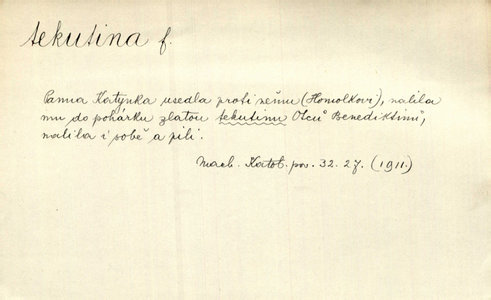 tekutina f.
Panna Katynka usedla proti němu (Homolkovi), nalila
mu do pohárku zlatou tekutinu Otců Benediktinů,
nalila i sobě a pili.
Mach. Katol. pov. 32. 27. (1911.)